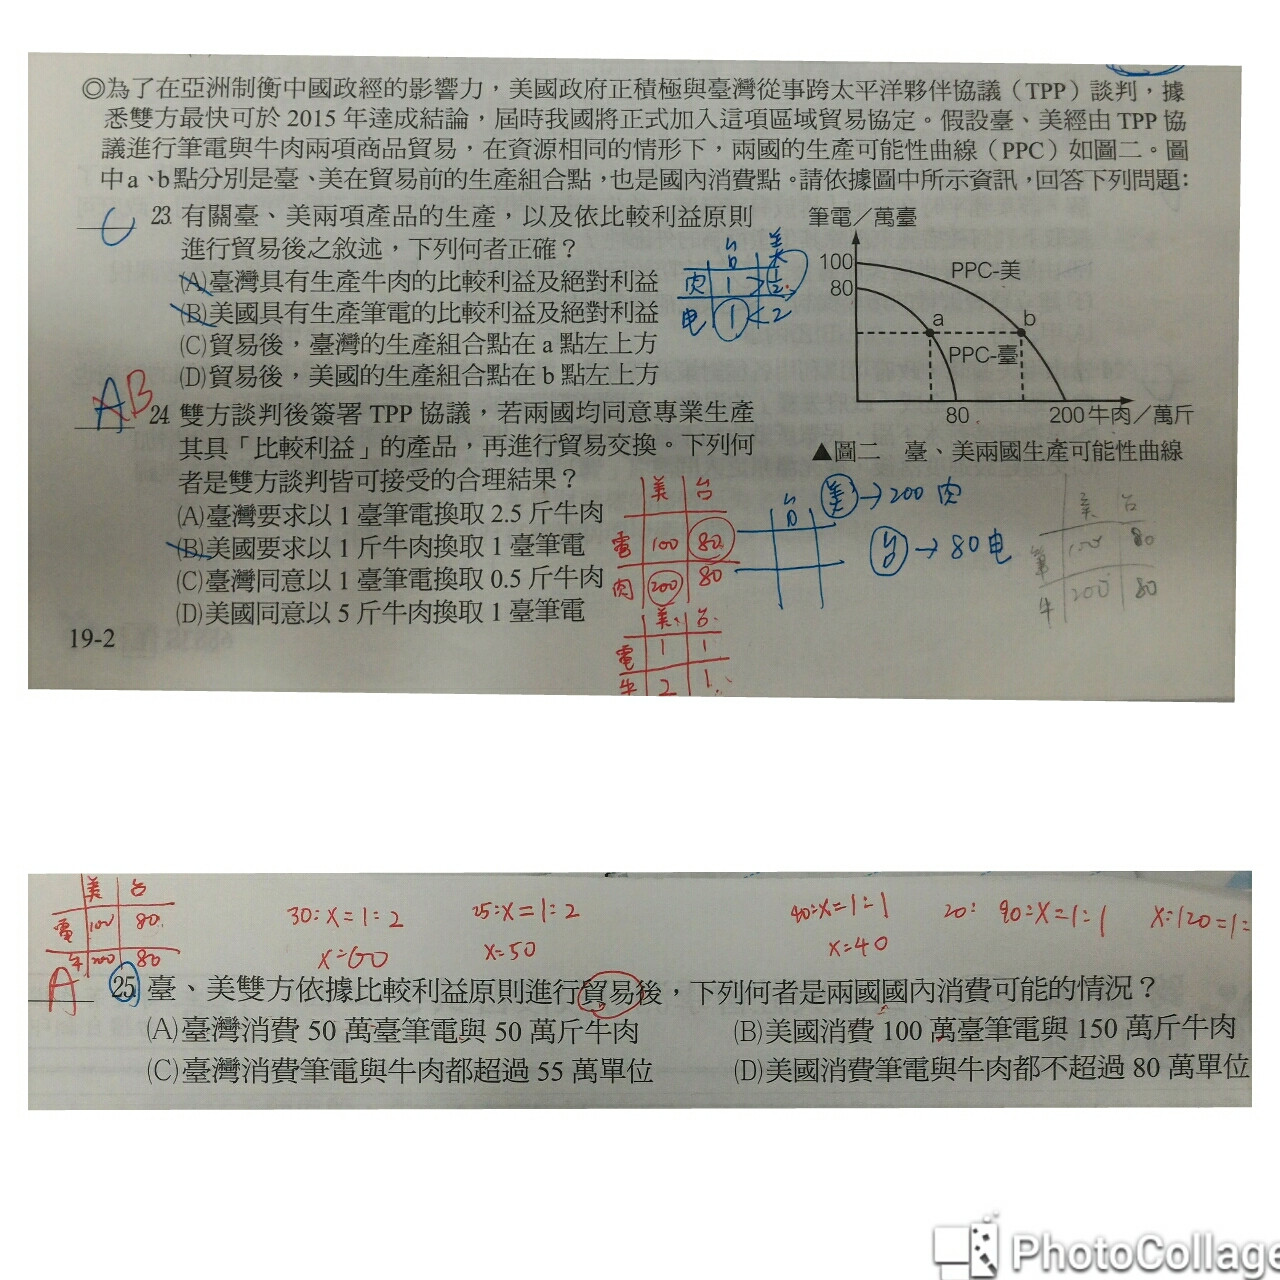 ◎為了在亞洲制衡中國政經的影響力，美國政府正積極與臺灣從事跨太平洋夥伴協議（TPP）談判，據
悉雙方最快可於 2015 年達成結論，屆時我國將正式加入這項區域貿易協定。假設臺、美經由 TPP 協
議進行筆電與牛肉兩項商品貿易，在資源相同的情形下，兩國的生產可能性曲線（PPC）如圖二。圖
中a、b點分別是臺、美在貿易前的生產組合點，也是國內消費點。請依據圖中所示資訊，回答下列問題：
C 23. 有關臺、美兩項產品的生產，以及依比較利益原則
進行貿易後之敘述，下列何者正確？
(A)臺灣具有生產牛肉的比較利益及絕對利益
(B)美國具有生產筆電的比較利益及絕對利益
(C)貿易後，臺灣的生產組合點在 a 點左上方
(D)貿易後，美國的生產組合點在 b 點左上方
台 美
肉 1
电 1 < 2
筆電／萬臺
100
PPC-美
80
a
b
PPC-臺
80
200 牛肉／萬斤
▲圖二 臺、美兩國生產可能性曲線
AB 24. 雙方談判後簽署 TPP 協議，若兩國均同意專業生產
其具「比較利益」的產品，再進行貿易交換。下列何
者是雙方談判皆可接受的合理結果？
(A)臺灣要求以 1 臺筆電換取 2.5 斤牛肉
(B)美國要求以 1 斤牛肉換取 1 臺筆電
(C)臺灣同意以 1 臺筆電換取 0.5 斤牛肉
(D)美國同意以 5 斤牛肉換取 1 臺筆電
19-2
美 台
電 100 80
肉 200 80
美 台
電 1 1
牛 2 1
台
美→200 肉
台→80电
美 台
筆 100 80
牛 200 80
美 台
電 100 80
牛 200 80
30:x=1:2
x=60
25:x=1:2
x=50
40:x=1:1
x=40
20:
90:x=1:1
x:120=1:
A 25. 臺、美雙方依據比較利益原則進行貿易後，下列何者是兩國國內消費可能的情況？
(A)臺灣消費 50 萬臺筆電與 50 萬斤牛肉
(B)美國消費 100 萬臺筆電與 150 萬斤牛肉
(C)臺灣消費筆電與牛肉都超過 55 萬單位
(D)美國消費筆電與牛肉都不超過 80 萬單位
PhotoCollage